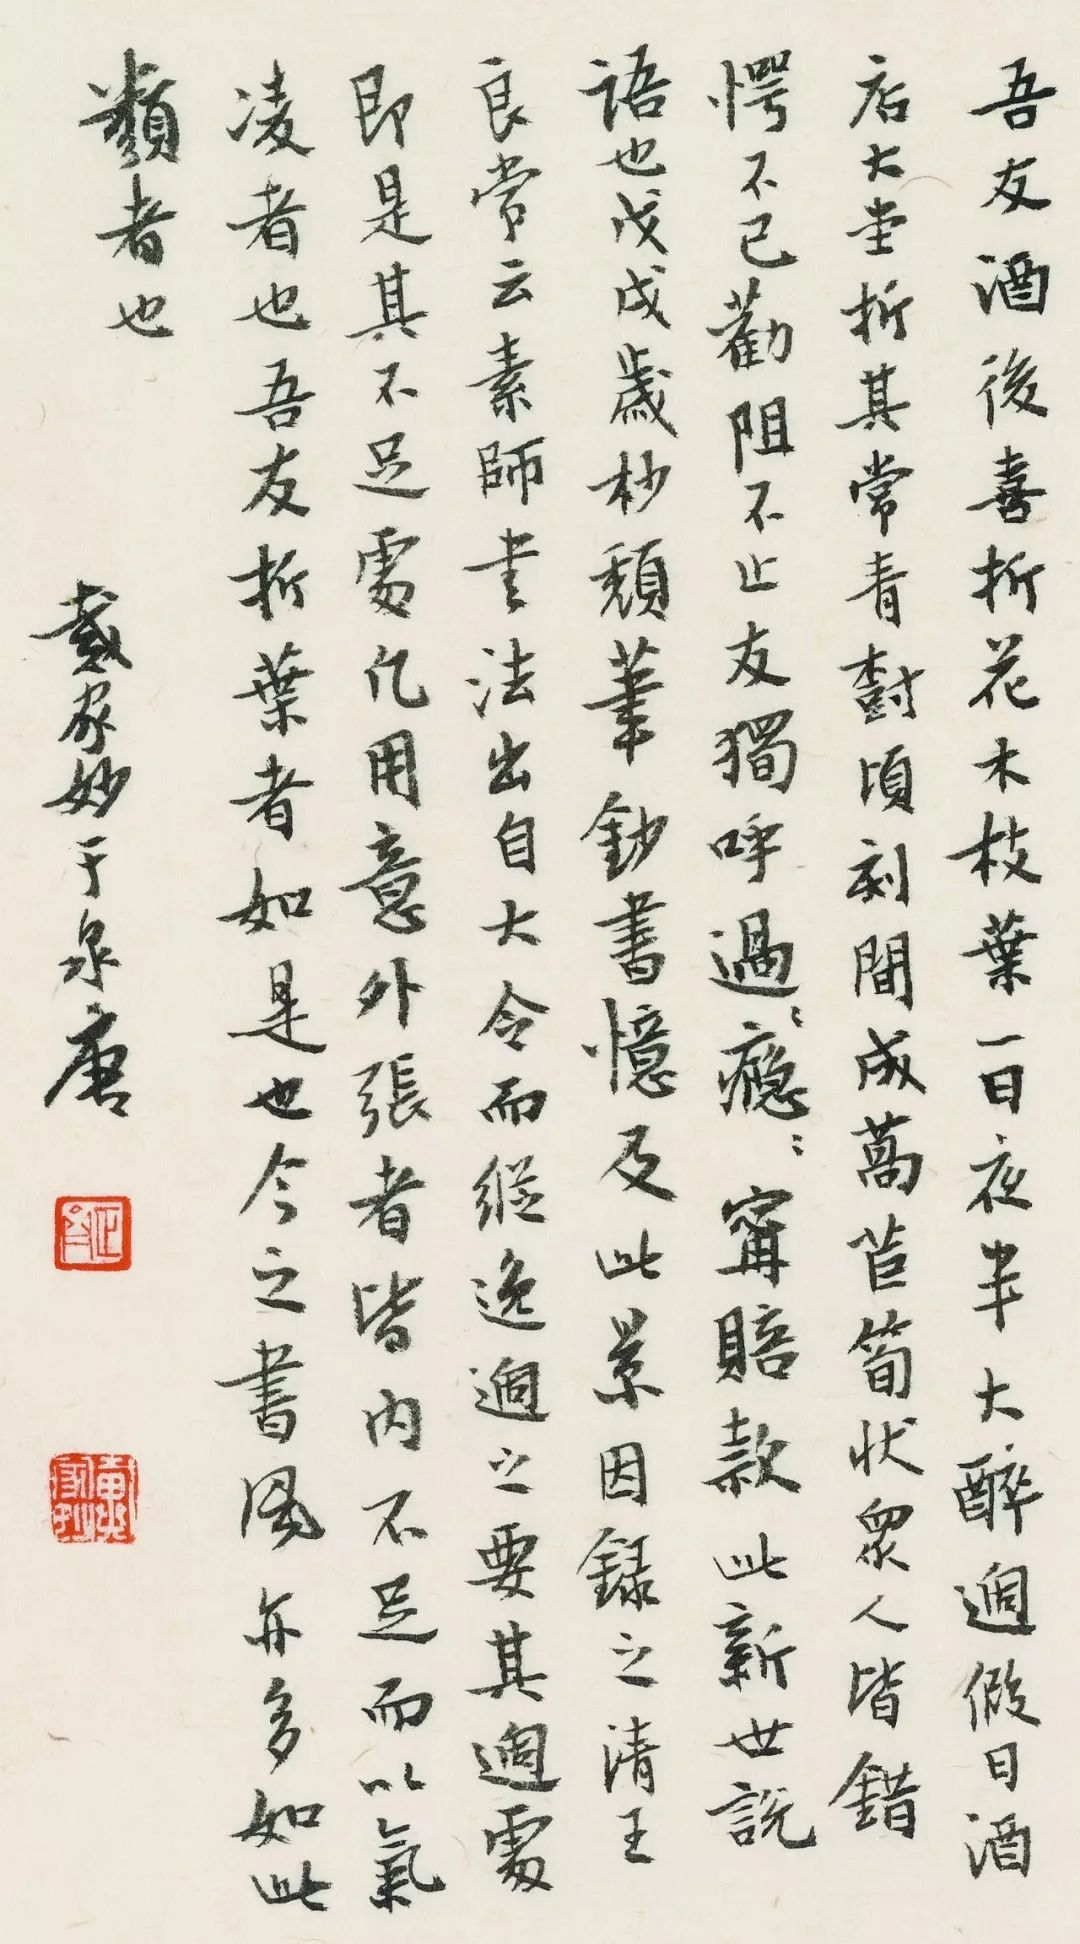 吾友酒後喜折花木枝葉一日夜半大醉過假日酒
店大堂折其常青樹頃刻間成萵苣筍狀眾人皆錯
愕不已勸阻不止友獨呼過〻癮〻甯賠款此新世說
語也戊戌歲杪頹筆鈔書憶及此景因錄之清王
良常云素師書法出自大令而縱逸過之要其過處
即是其不足處凡用意外張者皆內不足而以氣
凌者也吾友折葉者如是也今之書風亦多如此
類者也
戴家妙于泉唐